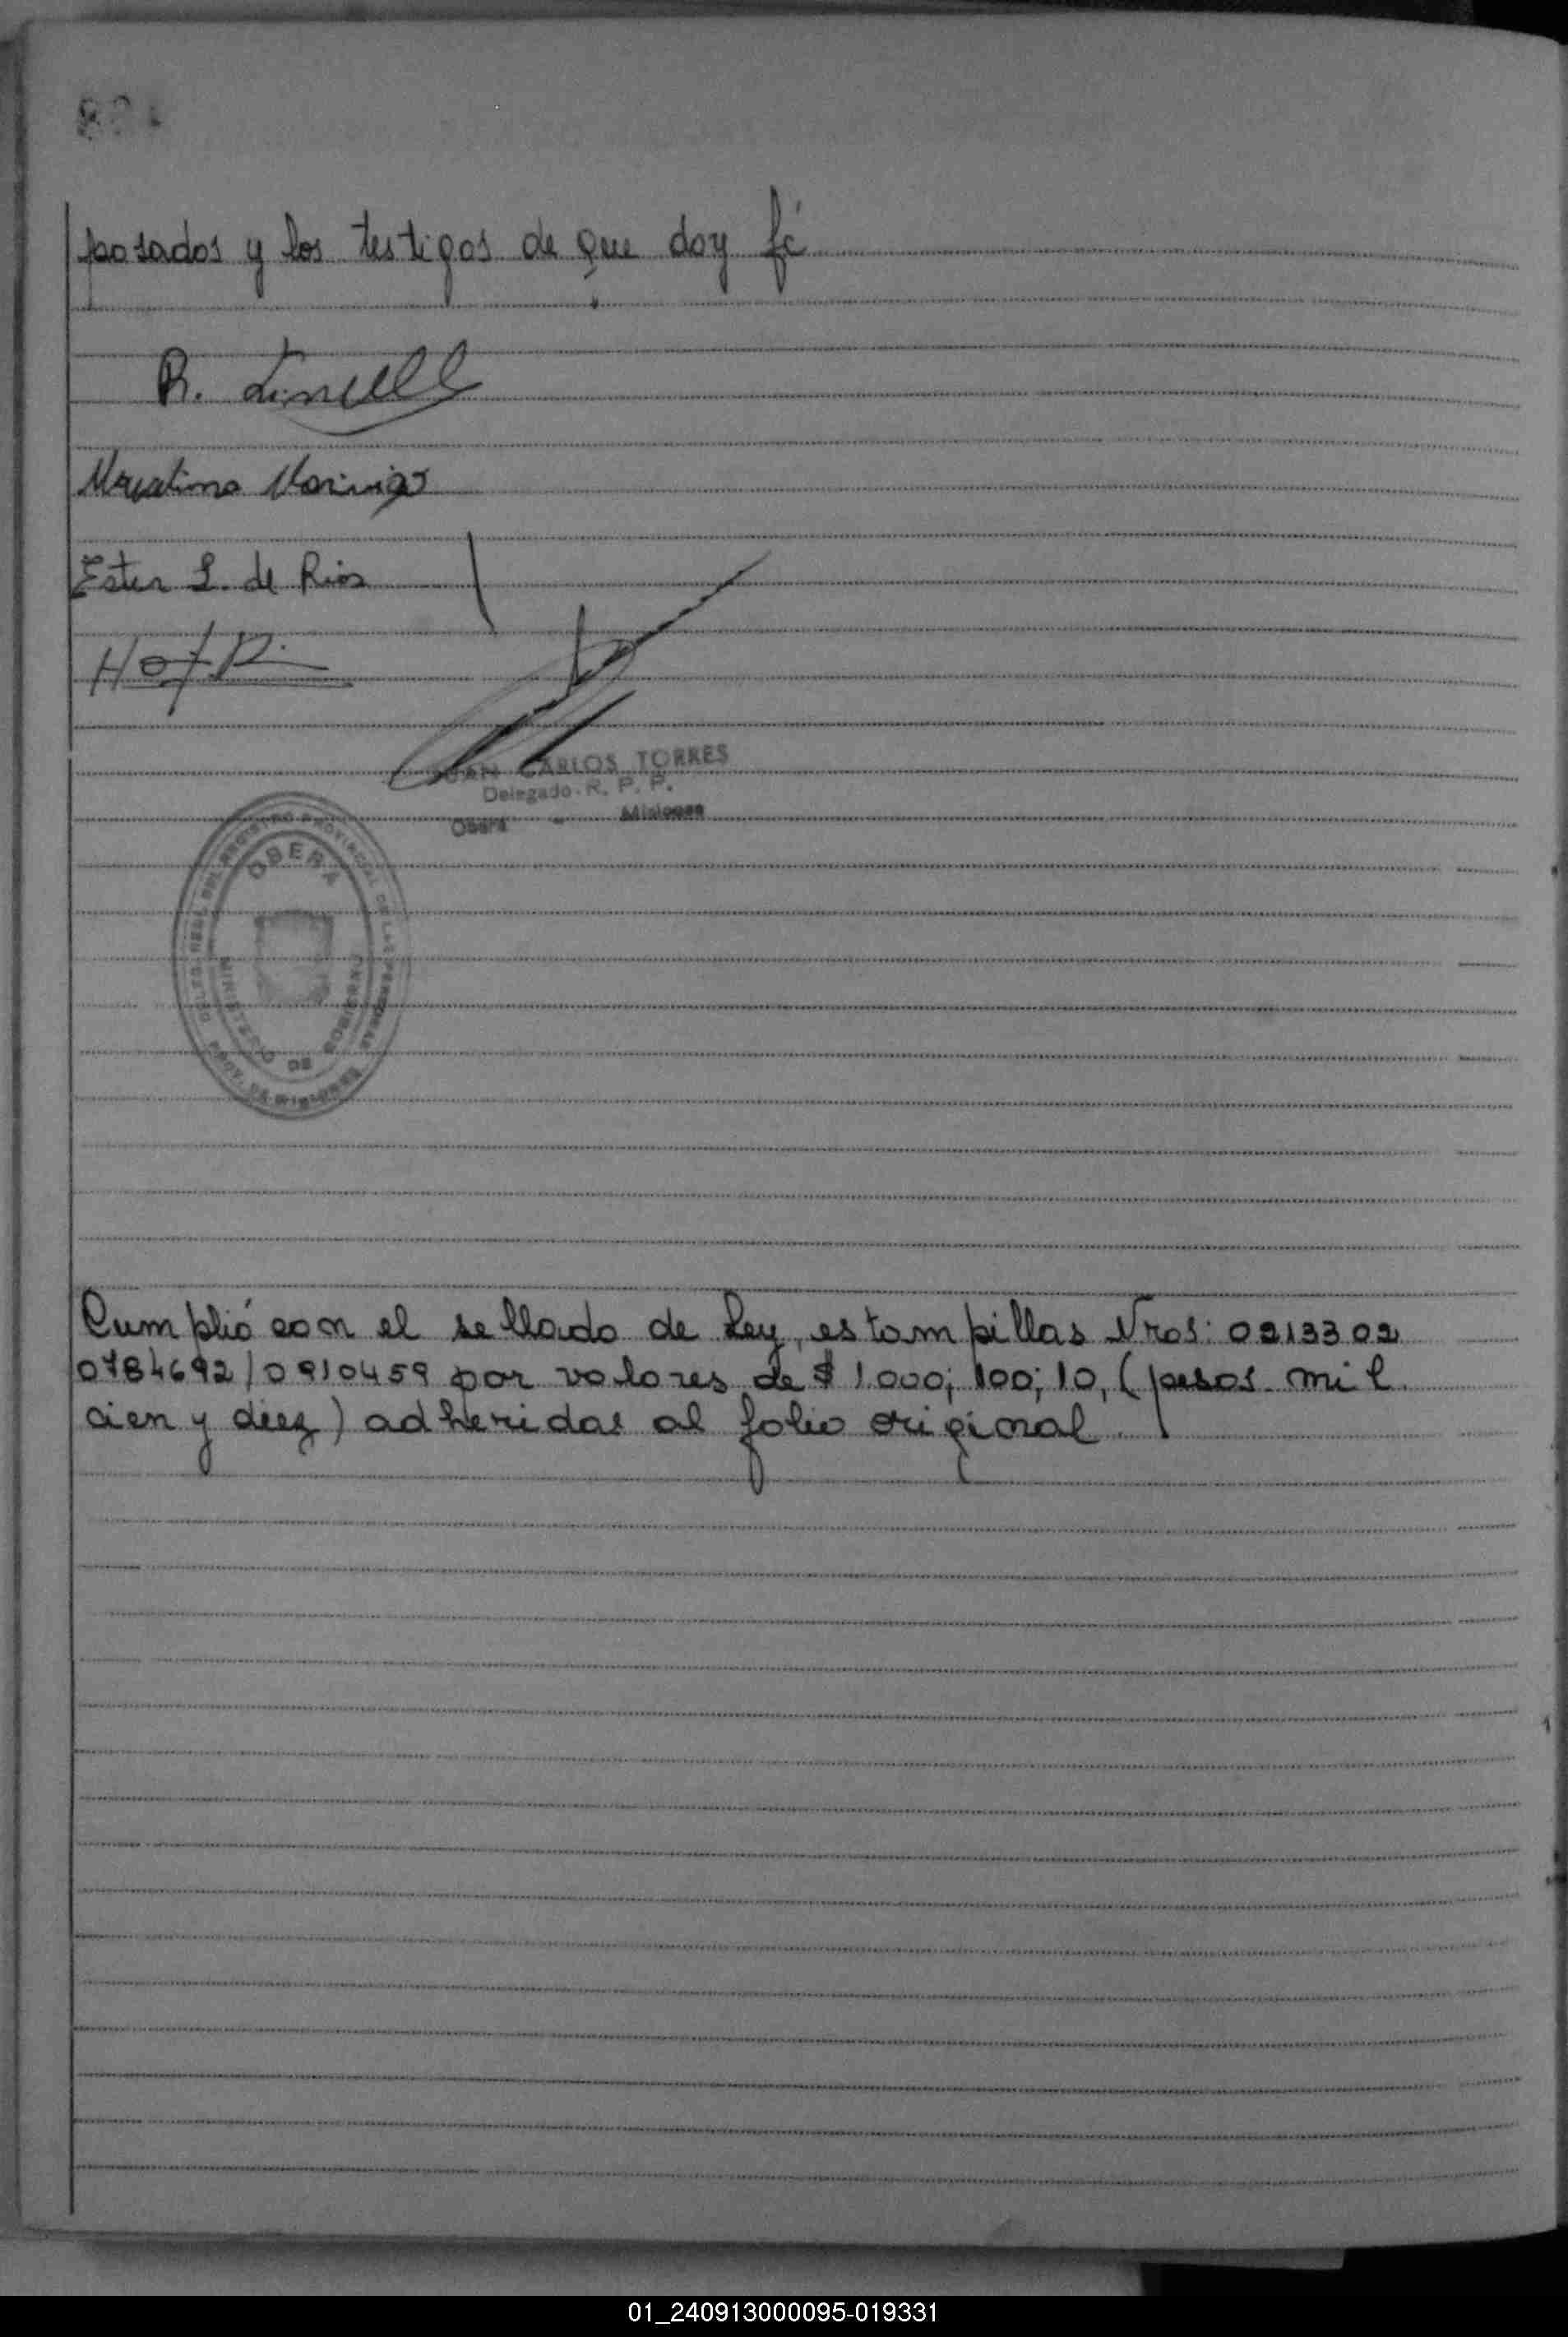 posados y los testigos de que doy fé
R.
Ester L. de Rios
JUAN CARLOS TORRES
Delegado R. P. P.
Oberá - Misiones
OBERÁ
DELEG. REG. DEL REGISTRO PROVINCIAL DE LAS PERSONAS
MINISTERIO DE GOBIERNO
PROV. DE MISIONES
Cumplió con el sellado de Ley, estampillas Nros: 0213302
0784692/0910459 por valores de $ 1.000; 100; 10, (pesos mil
cien y diez) adheridas al folio original.
01_240913000095-019331